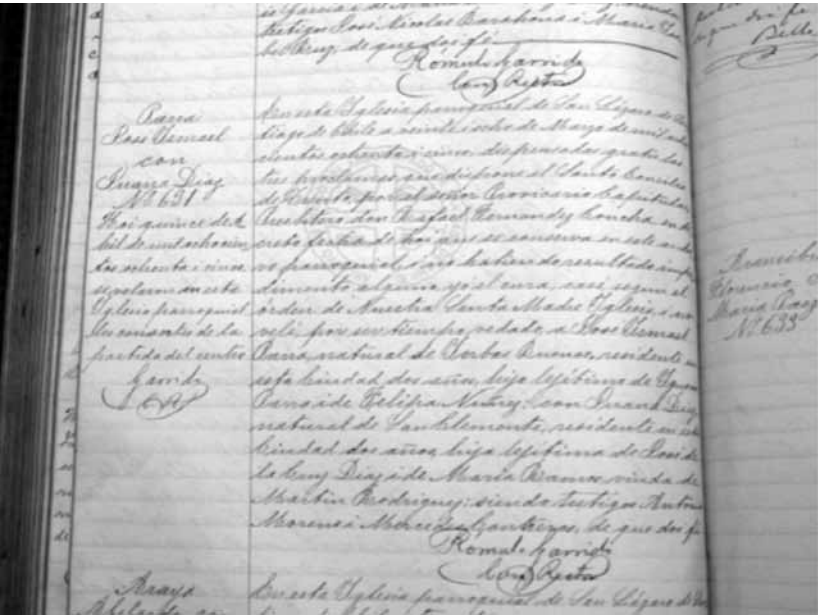 testigos José Nicolas Barahona i Maria
Cruz, de que doi fé
Rómulo Garrido
Cura Rector
Parra
José Ismael
con
Juana Diaz
Nº 631
Hoi quince de A
bril de mil ochocien
tos ochenta i cinco
se velaron en esta
Iglesia parroquial
los consortes de la
partida del centro
Garrido
En esta Iglesia parroquial de San Lázaro de
tiago de Chile a veinte i ocho de Marzo de mil
cientos ochenta i cinco, dispensadas gratis las
tres proclamas, que dispone el Santo Concilio
de Trento, por el señor Provicario Capitular
Presbítero don Rafael Fernandez Concha en
creto fecha de hoi que se conserva en este archi
vo parroquial, i no habiendo resultado impe
dimento alguno, yo el cura, casé segun el
órden de Nuestra Santa Madre Iglesia, i no
velé, por ser tiempo vedado, a José Ismael
Parra, natural de Yerbas Buenas, residente en
esta Ciudad dos años, hijo lejítimo de
Parra i de Felipa Nuñez: con Juana Diaz,
natural de San Clemente, residente en esta
Ciudad dos años, hija lejítima de José de
la Cruz Diaz i de Maria Ramos, viuda de
Martin Rodriguez: siendo testigos Antonio
Moreno i Mercedes Contreras, de que doi fé
Rómulo Garrido
Cura Rector
Araya
En esta Iglesia parroquial de San Lázaro de
que doi fe
Florencio
Maria
Nº 633